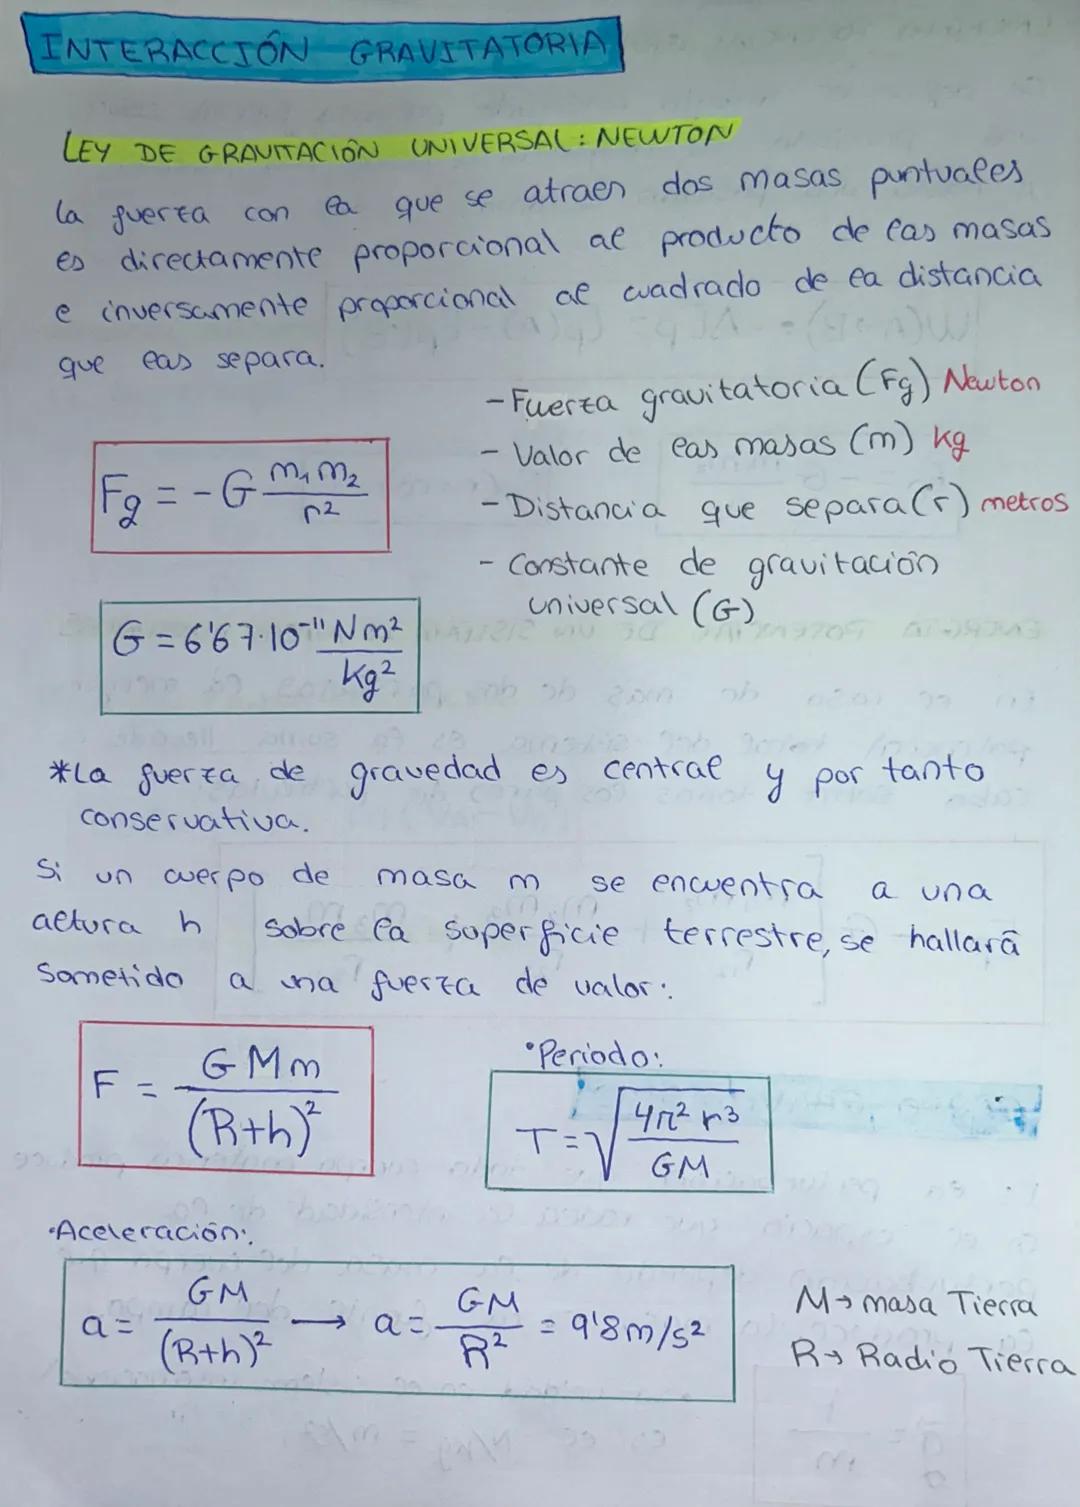 INTERACCIÓN GRAVITATORIA
LEY DE GRAVITACIÓN UNIVERSAL: NEWTON
La fuerza con la que se atraen dos masas puntuales
es directamente proporcional al producto de las masas
e inversamente proporcional al cuadrado de la distancia
que las separa.
Fg = - G m₁ m₂ / r²
- Fuerza gravitatoria (Fg) Newton
- Valor de las masas (m) kg
- Distancia que separa (r) metros
- Constante de gravitación
universal (G)
G = 6'67·10⁻¹¹ Nm² / kg²
*La fuerza de gravedad es central y por tanto
conservativa.
Si un cuerpo de masa m se encuentra a una
altura h sobre la superficie terrestre, se hallará
sometido a una fuerza de valor:
F = GMm / (R+h)²
• Periodo:
T = √(4π² r³ / GM)
• Aceleración:
a = GM / (R+h)² → a = GM / R² = 9'8 m/s²
M → masa Tierra
R → Radio Tierra